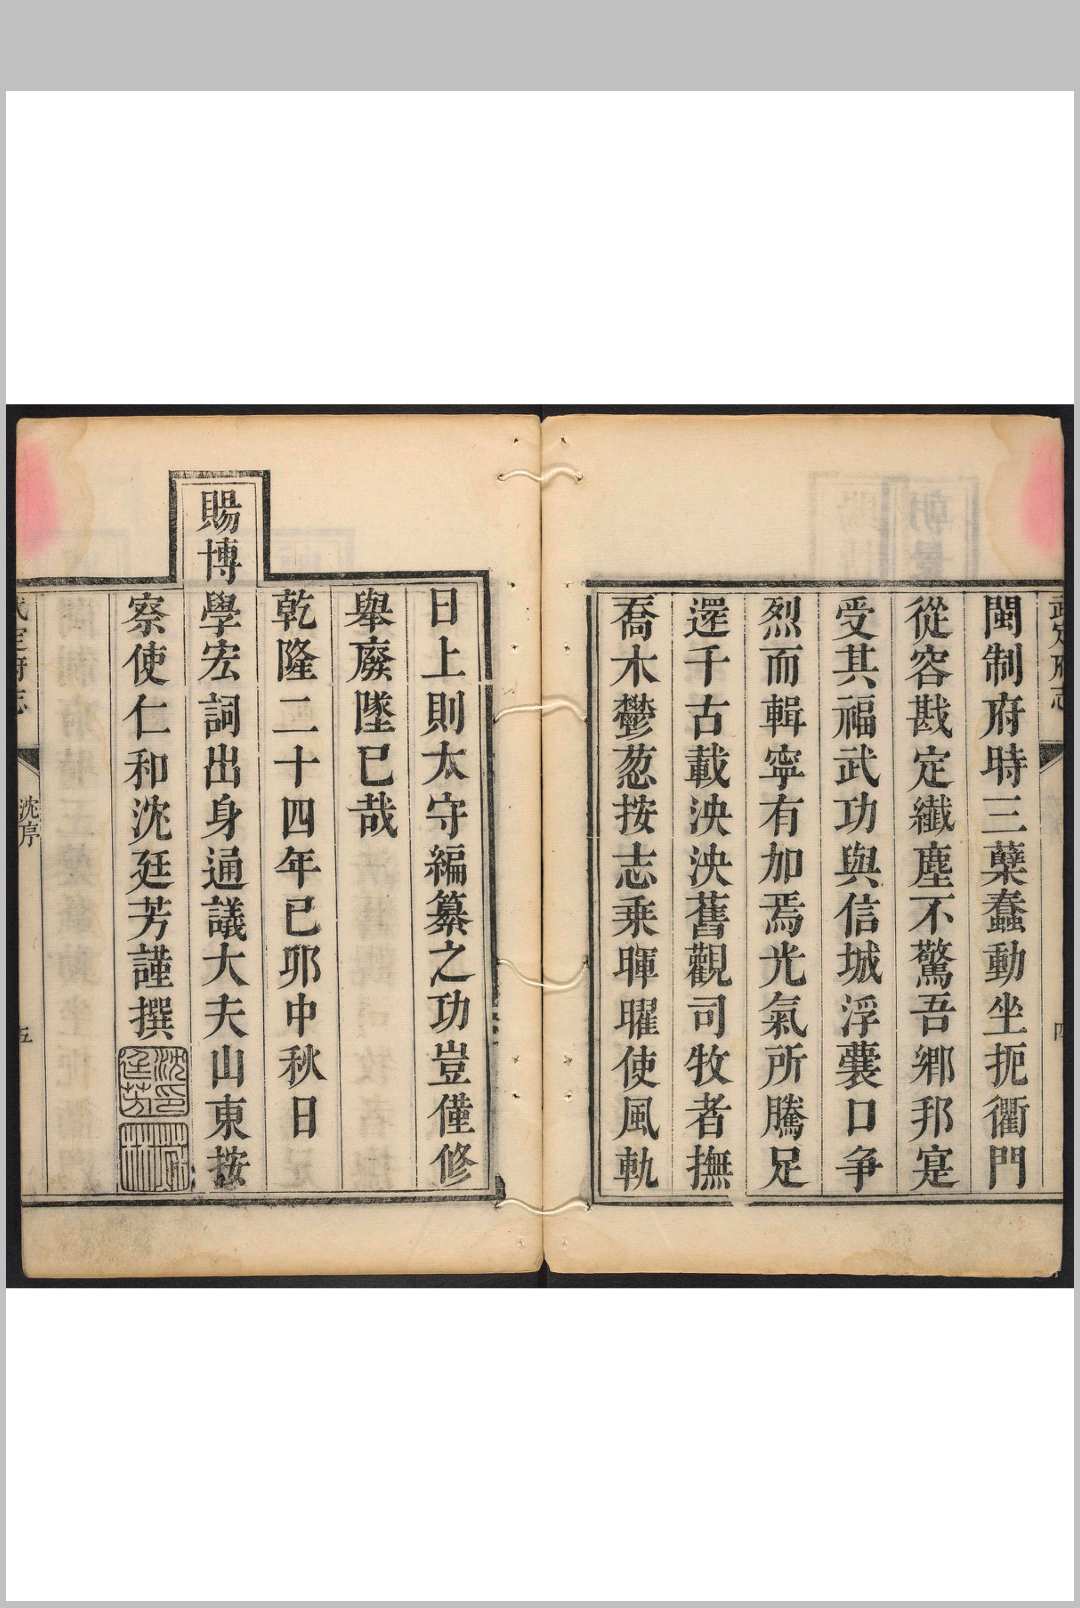 閩制府時三蘖蠢動坐扼衢門
從容戡定纖塵不驚吾鄉邦寔
受其福武功與信城浮囊口爭
烈而輯寧有加焉光氣所騰足
遝千古載泱泱舊觀司牧者撫
喬木鬱葱按志乗暉曜使風軌
日上則太守編纂之功豈僅修
舉廢墜已哉
乾隆二十四年己卯中秋日
賜博學宏詞出身通議大夫山東按
察使仁和沈廷芳謹撰
沈印廷芳
武定府志
沈序
五